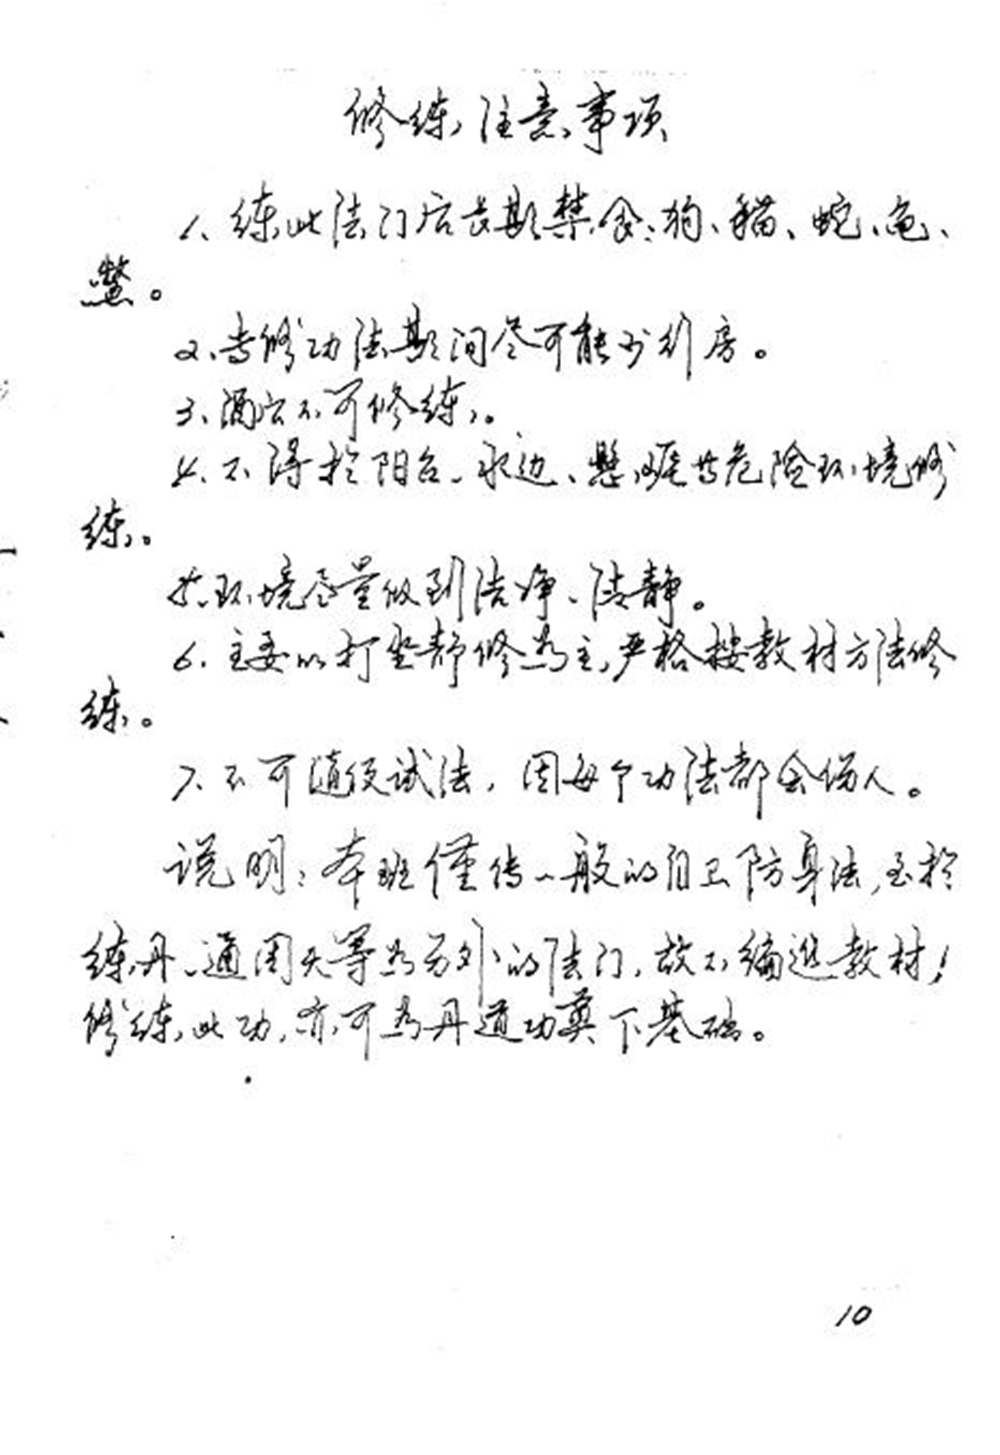 修练注意事项
1、练此法门后长期禁食：狗、貓、蛇、龟、
鳖。
2、专修功法期间尽可能少行房。
3、酒后不可修练。
4、不得於阳台、水边、悬崖等危险环境修
练。
5、环境尽量做到洁净、洁静。
6、主要以打坐静修为主，严格按教材方法修
练。
7、不可随便试法，因每个功法都会伤人。
说明：本班僅传一般的自卫防身法，至於
练丹、通周天等为另外的法门，故不编进教材！
修练此功，亦可为丹道功奠下基础。
10